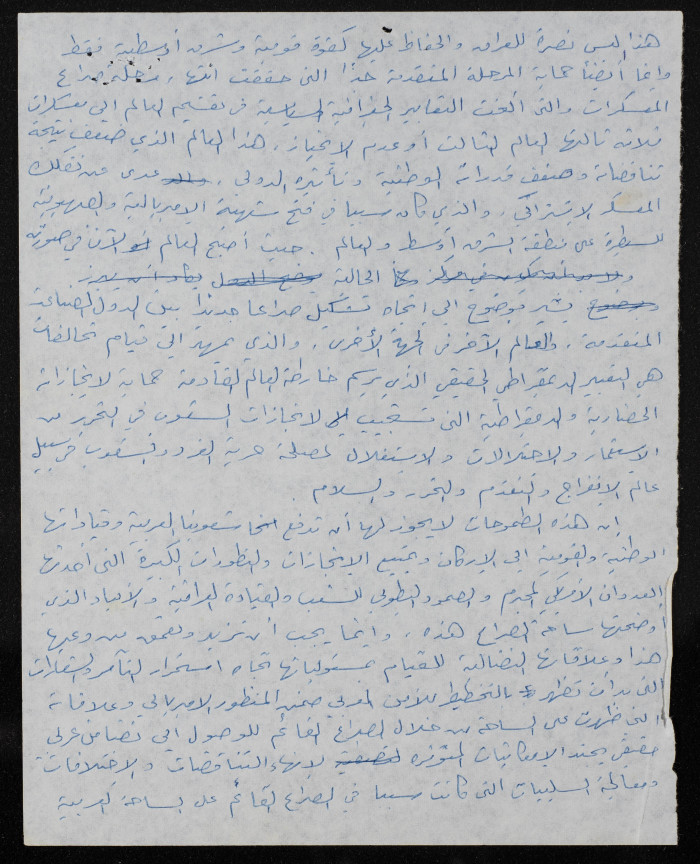 هذا ليس نصرة للعراق والحفاظ عليها كقوة قومية وشرق أوسطية فقط
وإنما أيضاً حماية المرحلة المتقدمة جداً التي حققت انتهاء مرحلة صراع
المعسكرات والتي ألغت التعابير الجغرافية السياسية في تقسيم العالم إلى معسكرات
ثلاثة ثالثها العالم الثالث أو عدم الانحياز. هذا العالم الذي ضعف نتيجة
تناقضاته وضعف قدراته الوطنية وتأثيره الدولي، عدى عن تفكك
المعسكر الاشتراكي. والذي كان سببا في فتح شهية الامبريالية والصهيونية
للسيطرة على منطقة الشرق أوسط والعالم. حيث أصبح العالم الآن في صورته
الحالية
يشير بوضوح إلى اتجاه تشكيل صراعا جديدا بين الدول الصناعية
المتقدمة. والعالم الآخر في الجهة الأخرى. والذي يمهد إلى قيام تحالفات
هي التعبير الديمقراطي الحقيقي الذي يرسم خارطة العالم القادمة حماية لانجازاته
الحضارية والديمقراطية التي تستجيب لانجازات الشعوب في التحرر من
الاستعمار والاحتلالات والاستغلال لمصلحة حرية الفرد والشعوب في سبيل
عالم الانفراج والتقدم والتحرر والسلام
إن هذه الطموحات لا يجوز لها أن تدفع شعوبنا العربية وقياداتها
الوطنية والقومية إلى الاركان وتمييع الانجازات والتطورات الكبيرة التي أحدثها
العدوان الأمريكي المجرم والصمود البطولي للشعب والقيادة العراقية والأبعاد الذي
أوضحتها ساحة الصراع هذه. وإنما يجب أن تزيد وتعمق من وعيها
هذا وعلاقاتها النضالية للقيام بمسئولياتها تجاه استمرار التآمر
التي بدأت تظهر بالتخطيط للأمن العربي ضمن المنظور الامبريالي وعلاقاته
التي ظهرت على الساحة من خلال الصراع القائم للوصول إلى تضامن عربي
حقيقي يجند الامكانيات المتوفرة لانهاء التناقضات والاختلافات
ومعالجة السلبيات التي كانت سببا في الصراع القائم على الساحة العربية